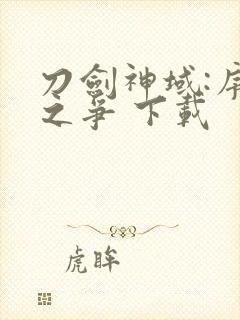 刀劍神域:
之爭 下載
虎眸